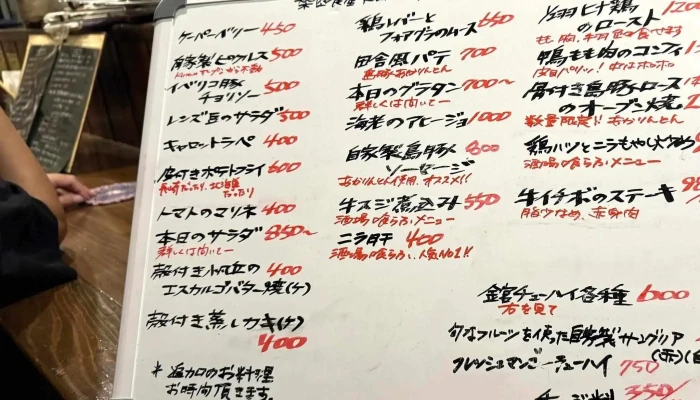 ケーパーベリー 450
自家製ピクルス 500
イベリコ豚
チョリソー 500
レンズ豆のサラダ 500
キャロットラペ 400
皮付きポテトフライ 600
トマトのマリネ 400
本日のサラダ 850〜
詳しくは向いて一
殻付き帆立の 400
エスカルゴバター焼(ケ)
殻付き蒸しカキ(ケ)
400
* 追加のお料理
お時間頂きます。
鶏レバーと
フォアグラのムース 650
田舎風パテ 700
島豚あかりんとん
本日のグラタン 700〜
詳しくは向いて一
海老のアヒージョ 1000
自家製島豚
ソーセージ 800
あかりんとん使用、オススメ!!
牛スジ煮込み 550
酒場喰らふメニュー
ニラ肝 400
酒場喰らふ、人気No1!!
ひな鶏
のロースト
鴨もも肉のコンフィ
皮目パリッ! 中はホロホロ
骨付き島豚ロース
のオーブン焼
数量限定!! あかりんとん
鶏ハツとニラもやし炒め
酒場喰らふメニュー
牛イチボのステーキ
脂少なめ、赤身肉
金宮チューハイ各種 600
右を見て
旬なフルーツを使った自家製サングリア
(赤)
フレッシュマンゴーチューハイ 750
チャージ料 350